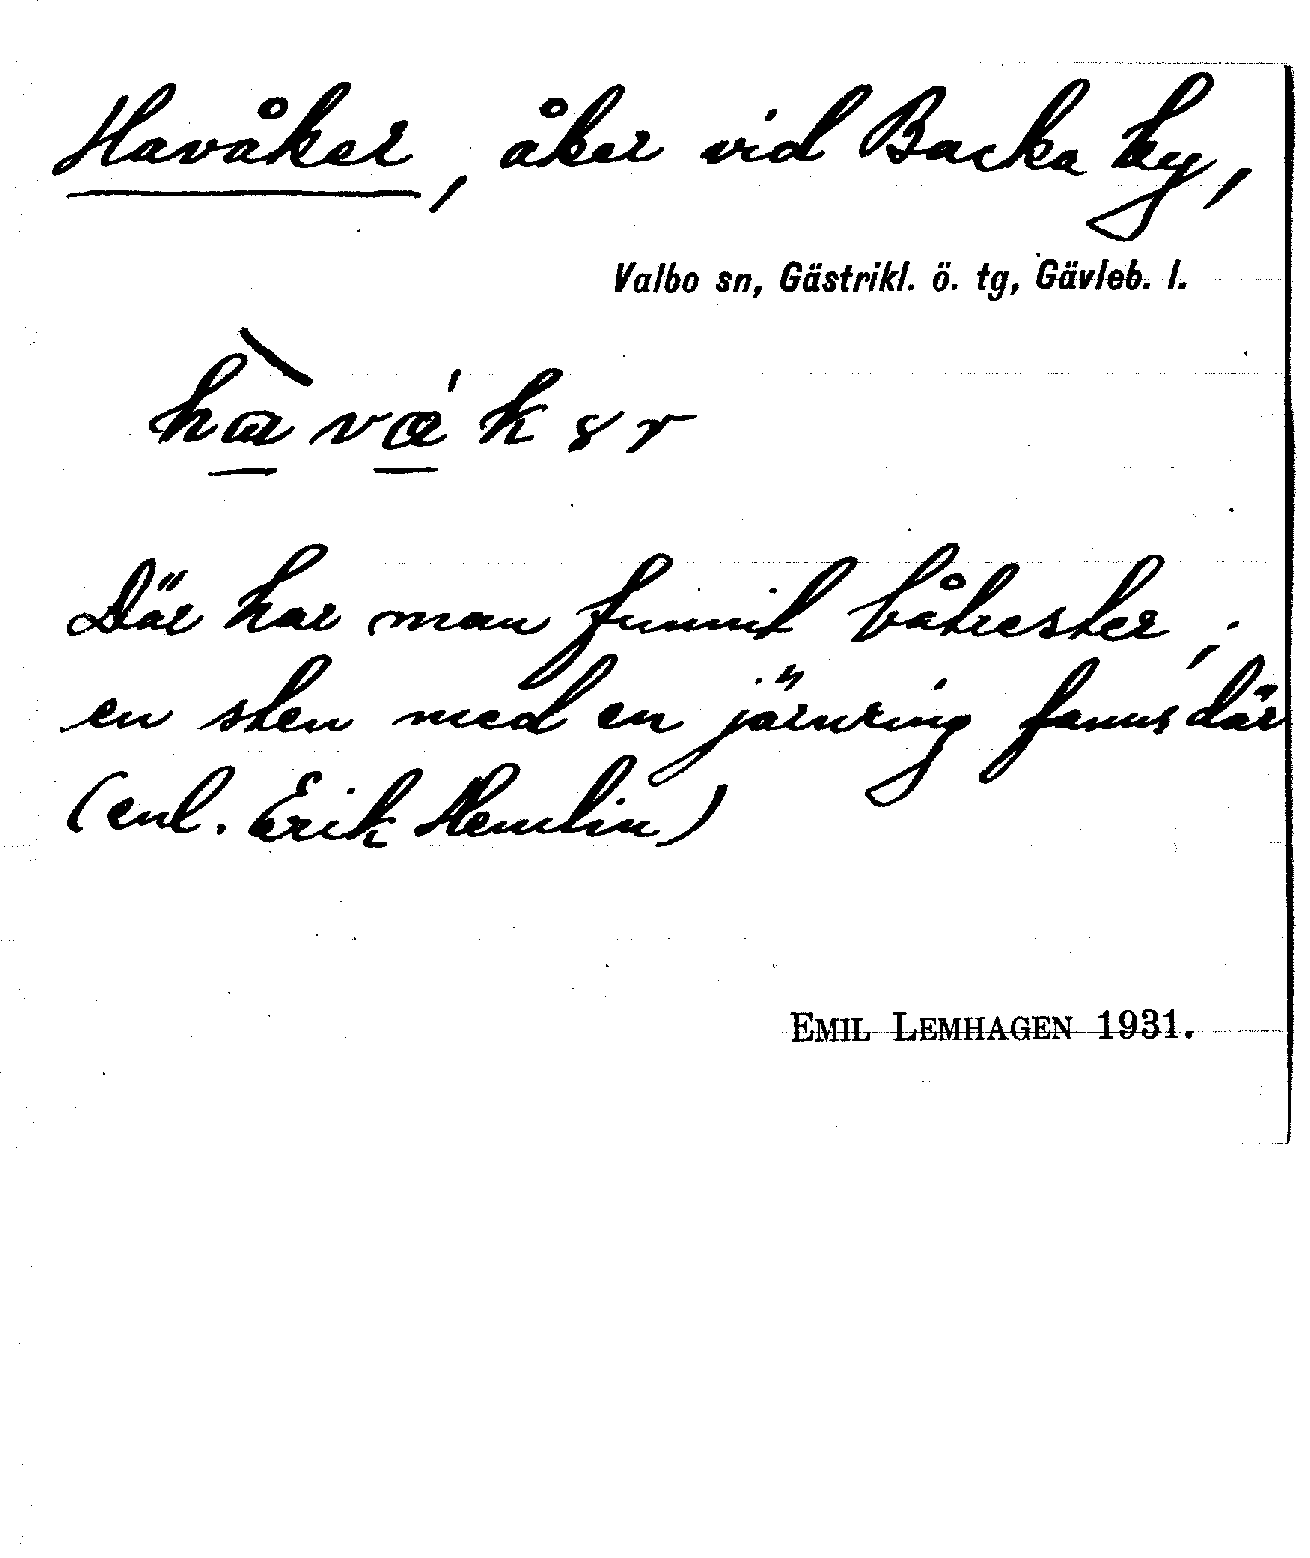 Havåker, åker vid Backa by,
Valbo sn, Gästrikl. ö. tg, Gävleb. l.
Där har man funnit båtrester;
en sten med en järnring fanns där
(enl. Erik Hemlin)
EMIL LEMHAGEN 1931.